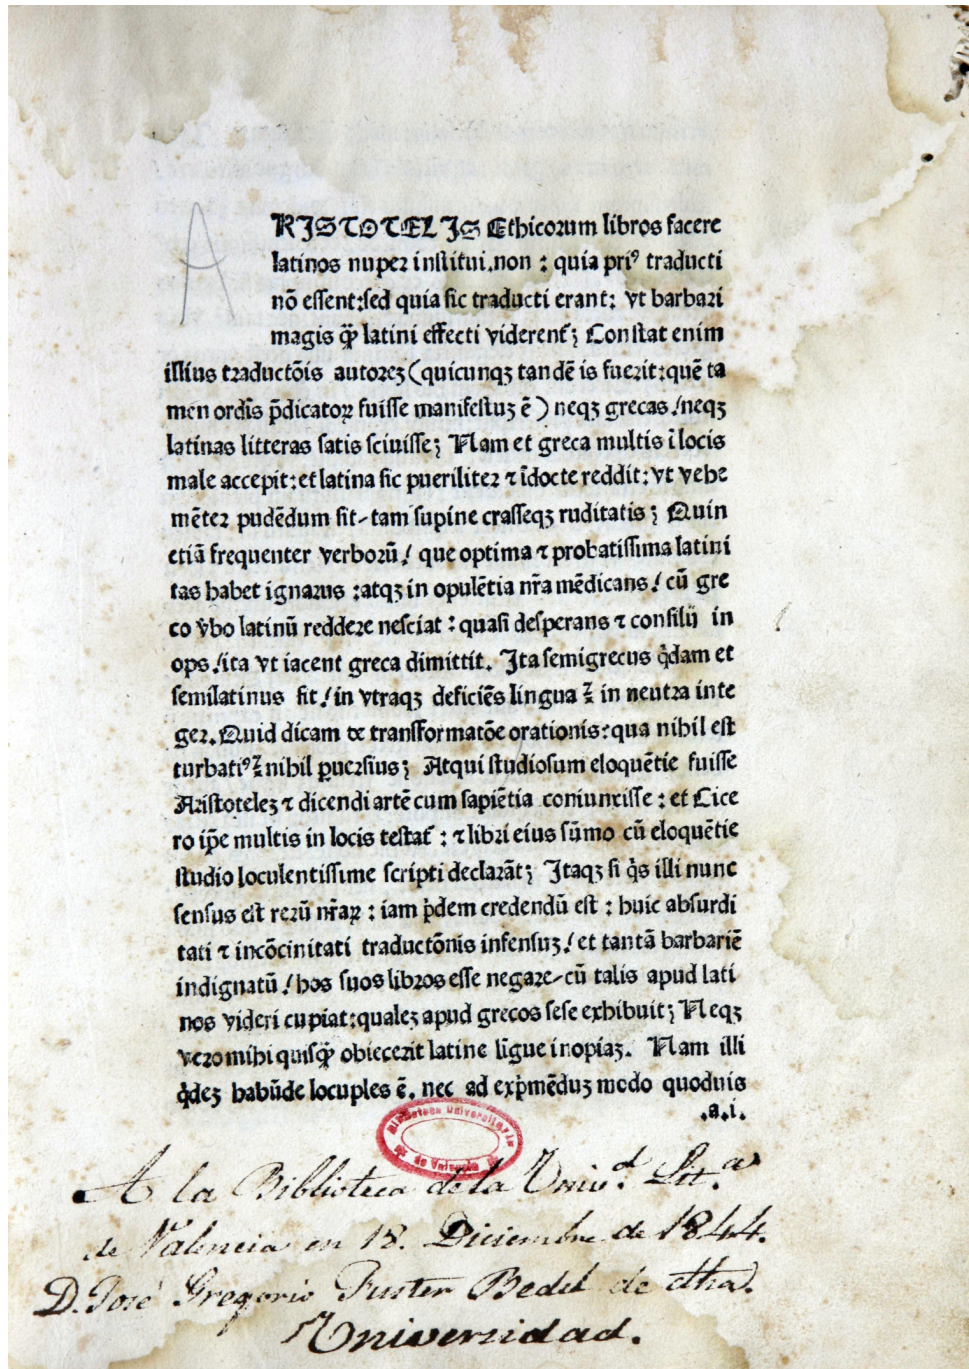 A
RISTOTELIS Ethicorum libros facere
latinos nuper institui.non : quia priꝰ traducti
nō essent:sed quia sic traducti erant: vt barbari
magis q̄ꝫ latini effecti viderent᷑; Constat enim
illius traductōis autoreꝫ (quicunqꝫ tandē is fuerit:quē ta
men ordīs p̄dicatoꝝ fuisse manifestuꝫ ē) neqꝫ grecas / neqꝫ
latinas litteras satis sciuisse; Nam et greca multis ī locis
male accepit:et latina sic pueriliter ⁊ īdocte reddit:vt vehe
mēter pudēdum sit-tam supine crasseqꝫ ruditatis; Quin
etiā frequenter verborū / que optima ⁊ probatissima latini
tas habet ignarus :atqꝫ in opulētia nr̄a mēdicans / cū gre
co v̄bo latinū reddere nesciat : quasi desperans ⁊ consilii in
ops / ita vt iacent greca dimittit. Ita semigrecus q̇dam et
semilatinus fit / in vtraqꝫ deficiēs lingua ⁊̄ in neutra inte
ger. Quid dicam de transformatōe orationis:qua nihil est
turbatiꝰ ⁊̄ nihil ꝑuersius; Atqui studiosum eloquētie fuisse
Aristoteleꝫ ⁊ dicendi artē cum sapiētia coniunxisse : et Cice
ro ip̄e multis in locis testat᷑ : ⁊ libri eius sūmo cū eloquētie
studio loculentissime scripti declarāt; Itaqꝫ si q̇s illi nunc
sensus est rerū nr̄aꝝ : iam ṗdem credendū est : huic absurdi
tati ⁊ incōcinitati traductōnis infensuꝫ / et tantā barbariē
indignatū / hos suos libros esse negare-cū talis apud lati
nos videri cupiat:qualeꝫ apud grecos sese exhibuit; Neqꝫ
vero mihi quisq̄ꝫ obiecerit latine līgue inopiaꝫ. Nam illi
q̇deꝫ habūde locuples ē. nec ad exṗmēduꝫ modo quoduis
.a.i.
Biblioteca Universitaria
de Valencia
A la Biblioteca de la Univ.d Lit.a
de Valencia en 18. Diciembre de 1844.
D. José Gregorio Fuster Bedel de dha.
Universidad.